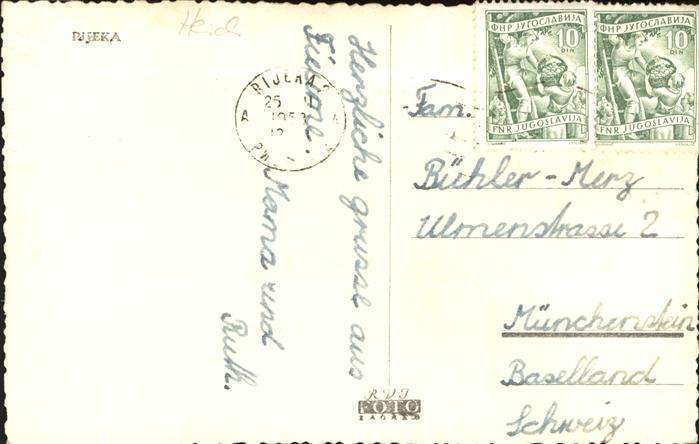 RIJEKA
Herzliche grusse aus
Fiume.
Mama und
Ruth.
RIJEKA 2
25
A A
12
ФНР ЈУГОСЛАВИЈА
10
DIN
FNR JUGOSLAVIJA
ФНР ЈУГОСЛАВИЈА
10
DIN
FNR JUGOSLAVIJA
Fam.
Bühler-Merz
Ulmenstrasse 2
Münchenstein
Baselland
Schweiz
RVI
FOTO
ZAGREB